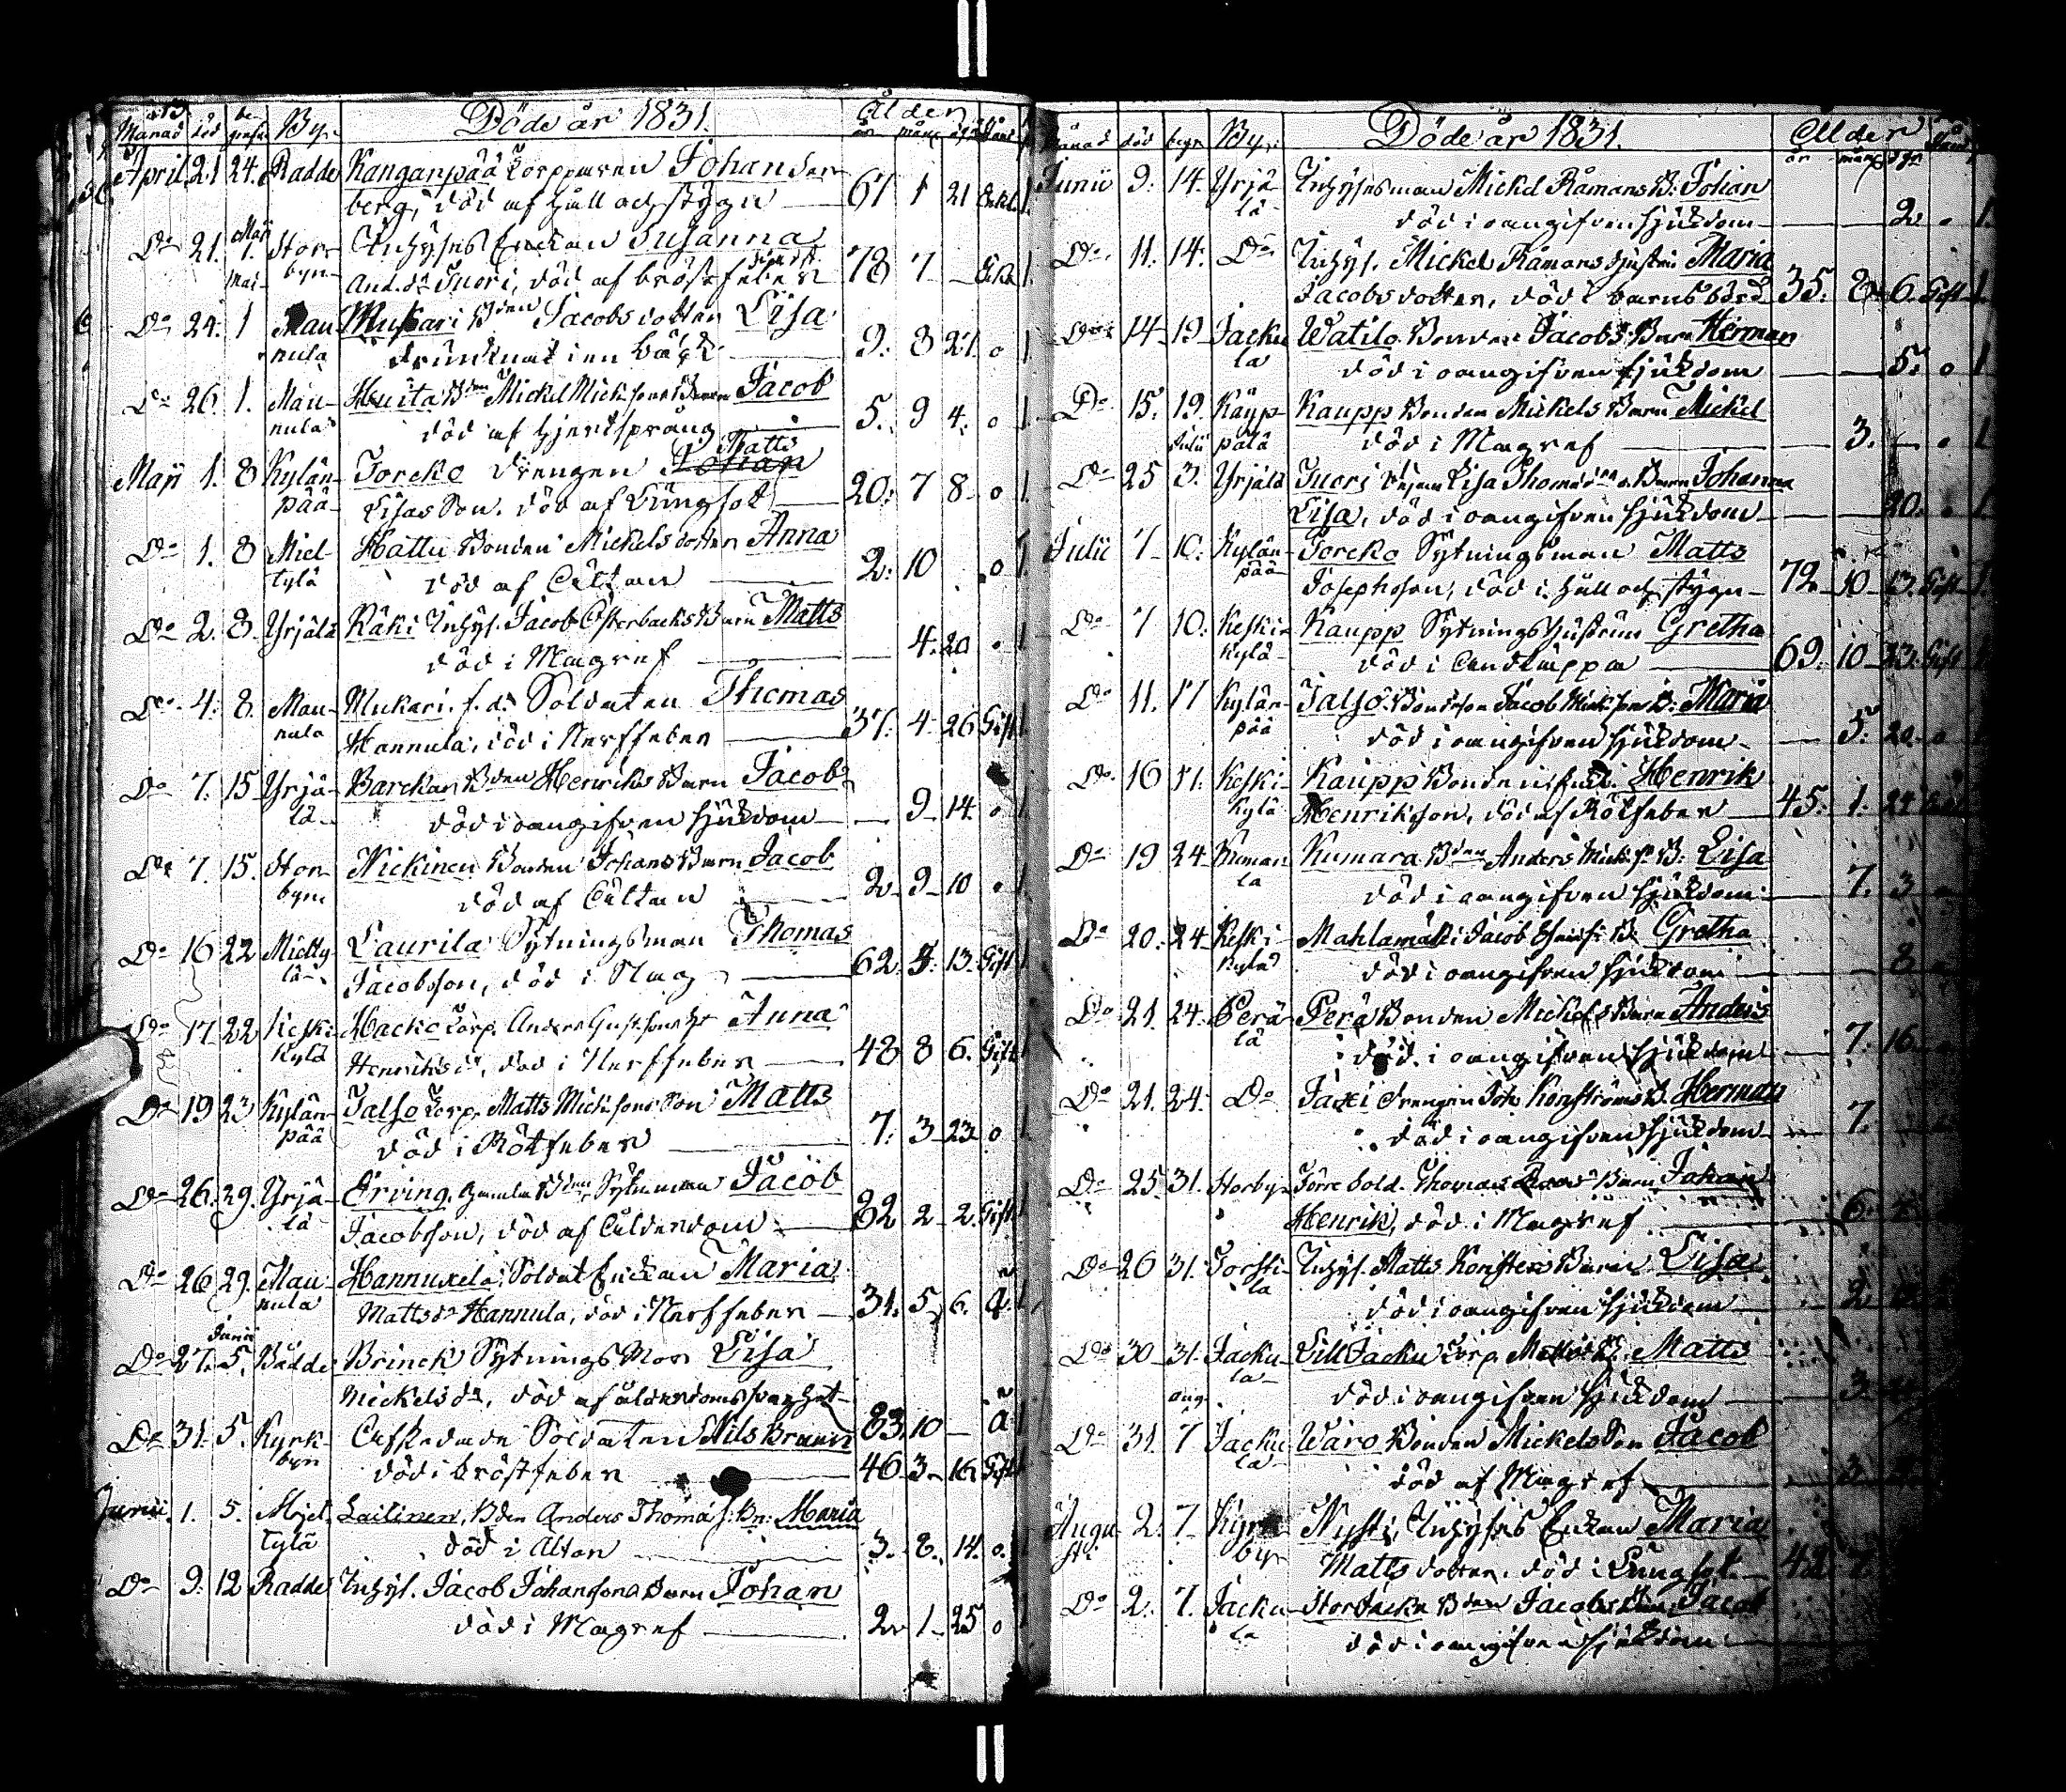 Månad död be grafn By. Döde år 1831. Ålder år mån: dag: Stånd
April 21 24. Radde Kanganpää Torpparen Johan Sar
berg, död af håll och stygn 67 1 21 Enkl. 1.
Do 21. Maji 1. Stor Inhyses Enkan Susanna
byn And.dr Tuori, död af bröstfeber 78 7 Enk 1.
Do 24. 1 Man Mukari Bden Jacobs dotter Lisa
nula drunknat i en bäck 9. 8 27. o 1.
Do 26. 1. Man- Huita Bden Mickel Mickelsons Barn Jacob
nula död af hjertsprång 5. 9 4. o 1.
Maji 1. 8 Kylän- Torcko Drengen Johan Matts
pää Lisas Son. död af Lungsot 20. 7 8. o 1.
Do 1. 8 Miel- Hattu Bonden Mickels dotter Anna
tylä död af Åltan 2. 10 o 1.
Do 2. 8. Yrjälä Räki Inhys. Jacob Österbacks Barn Matts
död i Magref 4. 20 o 1.
Do 4. 8. Man- Mukari. f.d. Soldaten Thomas
nula Hannula, död i Nerffeber 37. 4. 26 Gift 1.
Do 7. 15 Yrjä- Barckar Bden Henriks Barn Jacob
lä död i oangifven sjukdom 9 14. o 1.
Do 7. 15. Stor- Nickinen Bonden Johans Barn Jacob
byn död af Åltan 2 9 10 o 1.
Do 16 22 Mielty- Laurila Sytningsman Thomas
lä Jacobsson, död i Slag 62. 5. 13. Gift 1.
Do 17 22 Keski Macko Torp. Anders Gustfsons hr Anna
kylä Henriksdr, död i Nerffeber 48 8 6. Gift 1.
Do 19 23 Kylän- Jalso Torp. Matts Mickelsons Son Matts
pää död i Rötfeber 7. 3 23 o 1.
Do 26. 29. Yrjä- Erving, gamla Bden, Sytn.man Jacob
lä Jacobsson, död af Ålderdom 82 2 2. Gift
Do 26 29. Man- Hannuxela Soldat Enckan Maria
nula Mattsdr Hannula, död i Nerffeber 31. 5 6.
Do 27. Junii 5. Radde Brinck Sytnings Mor Lisa
Mickelsdr, död af ålderdomssvaghet 83. 10
Do 31. 5. Kyrk- Afskedade Soldaten Nils Bruun
byn död i bröstfeber 46 3 16 Gift
Junii. 1. 5. Mjel- Lailinen, Bden Anders Thomas. s. Bn: Maria
tylä död i Altan 3. 8. 14. o.
Do 9. 12 Radde Inhys. Jacob Johanssons Barn Johan
död i Magref 2 1 25 o
Månad död begr By: Döde år 1831. Ålder år mån dgr Stånd
Junii 9. 14. Yrjä- Inhysesman Mickel Råmans B: Johan
lä död i oangifven sjukdom 2 o 1.
Do 11. 14. Do Inhys. Mickel Råmans hustru Maria
Jacobs dotter, död i barnsbörd 35. 8 6. Gift 1.
Do 14 19 Jacku Watilo Bonden Jacobs Barn Herman
la död i oangifven sjukdom 5. o 1
Do 15. 19. Käyp- Kaupp Bonden Mickels Barn Mickel
pälä död i Magref 3. o 1
Do 25 Julii 3. Yrjälä Tuori Lisa Thomasdrs Barn Johanna
Lisa, död i oangifven sjukdom 20. 1.
Julii 7 10. Kylän- Torcko Sytningsman Matts
pää Josephsson, död i håll och stygn 72 10 13. Gift
Do 7 10: Keski- Kaupp Sytnings hustrun Gretha
kylä död i Andtäppa 69. 10 23. Gift
Do 11. 17 Kylän- Jalso Bondeson Jacob Mickelsons B. Maria
pää död i oangifven sjukdom 5. 20. o
Do 16 17. Keski- Kaupp Bonden Henrik
kylä Henriksson, död af Rötfeber 45. 1. 24
Do 19 24. Kumara- Kumara Bden Anders Mick. sn B: Lisa
la död i oangifven sjukdom 7. 3
Do 20. 24. Keski- Mahlamäki Jacob B: Gretha
kylä död i oangifven sjukdom 8
Do 21. 24. Perä- Perä Bonden Mickels Barn Anders
lä död i oangifven sjukdom 7. 16
Do 21. 24. Do Jaxi Drengen Joh. Konströms B. Herman
död i oangifven sjukdom 7.
Do 25. 31. Storby- Törre Sold. Thomas Barn Johan
Henrik, död i Magref 6.
Do 26 31. Torsti- Inhys. Matts Konstens Barn Lisa
la död i oangifven sjukdom 2
Do 30 31. Jacku- Lill Jacku Torp. Matts B. Matts
la död i oangifven sjukdom 3.
Do 31. aug 7 Jacku- Waro Bonden Mickels Son Jacob
la död af Magref 3.
Augu- 2. 7 Kyrk- Nysti, Inhyses Enkan Maria
sti by Matts dotter. död i Lungsot 42 7
Do 2. 7. Jacku- Stor Jacku Bden Jacobs Barn Jacob
la död i oangifven sjukdom